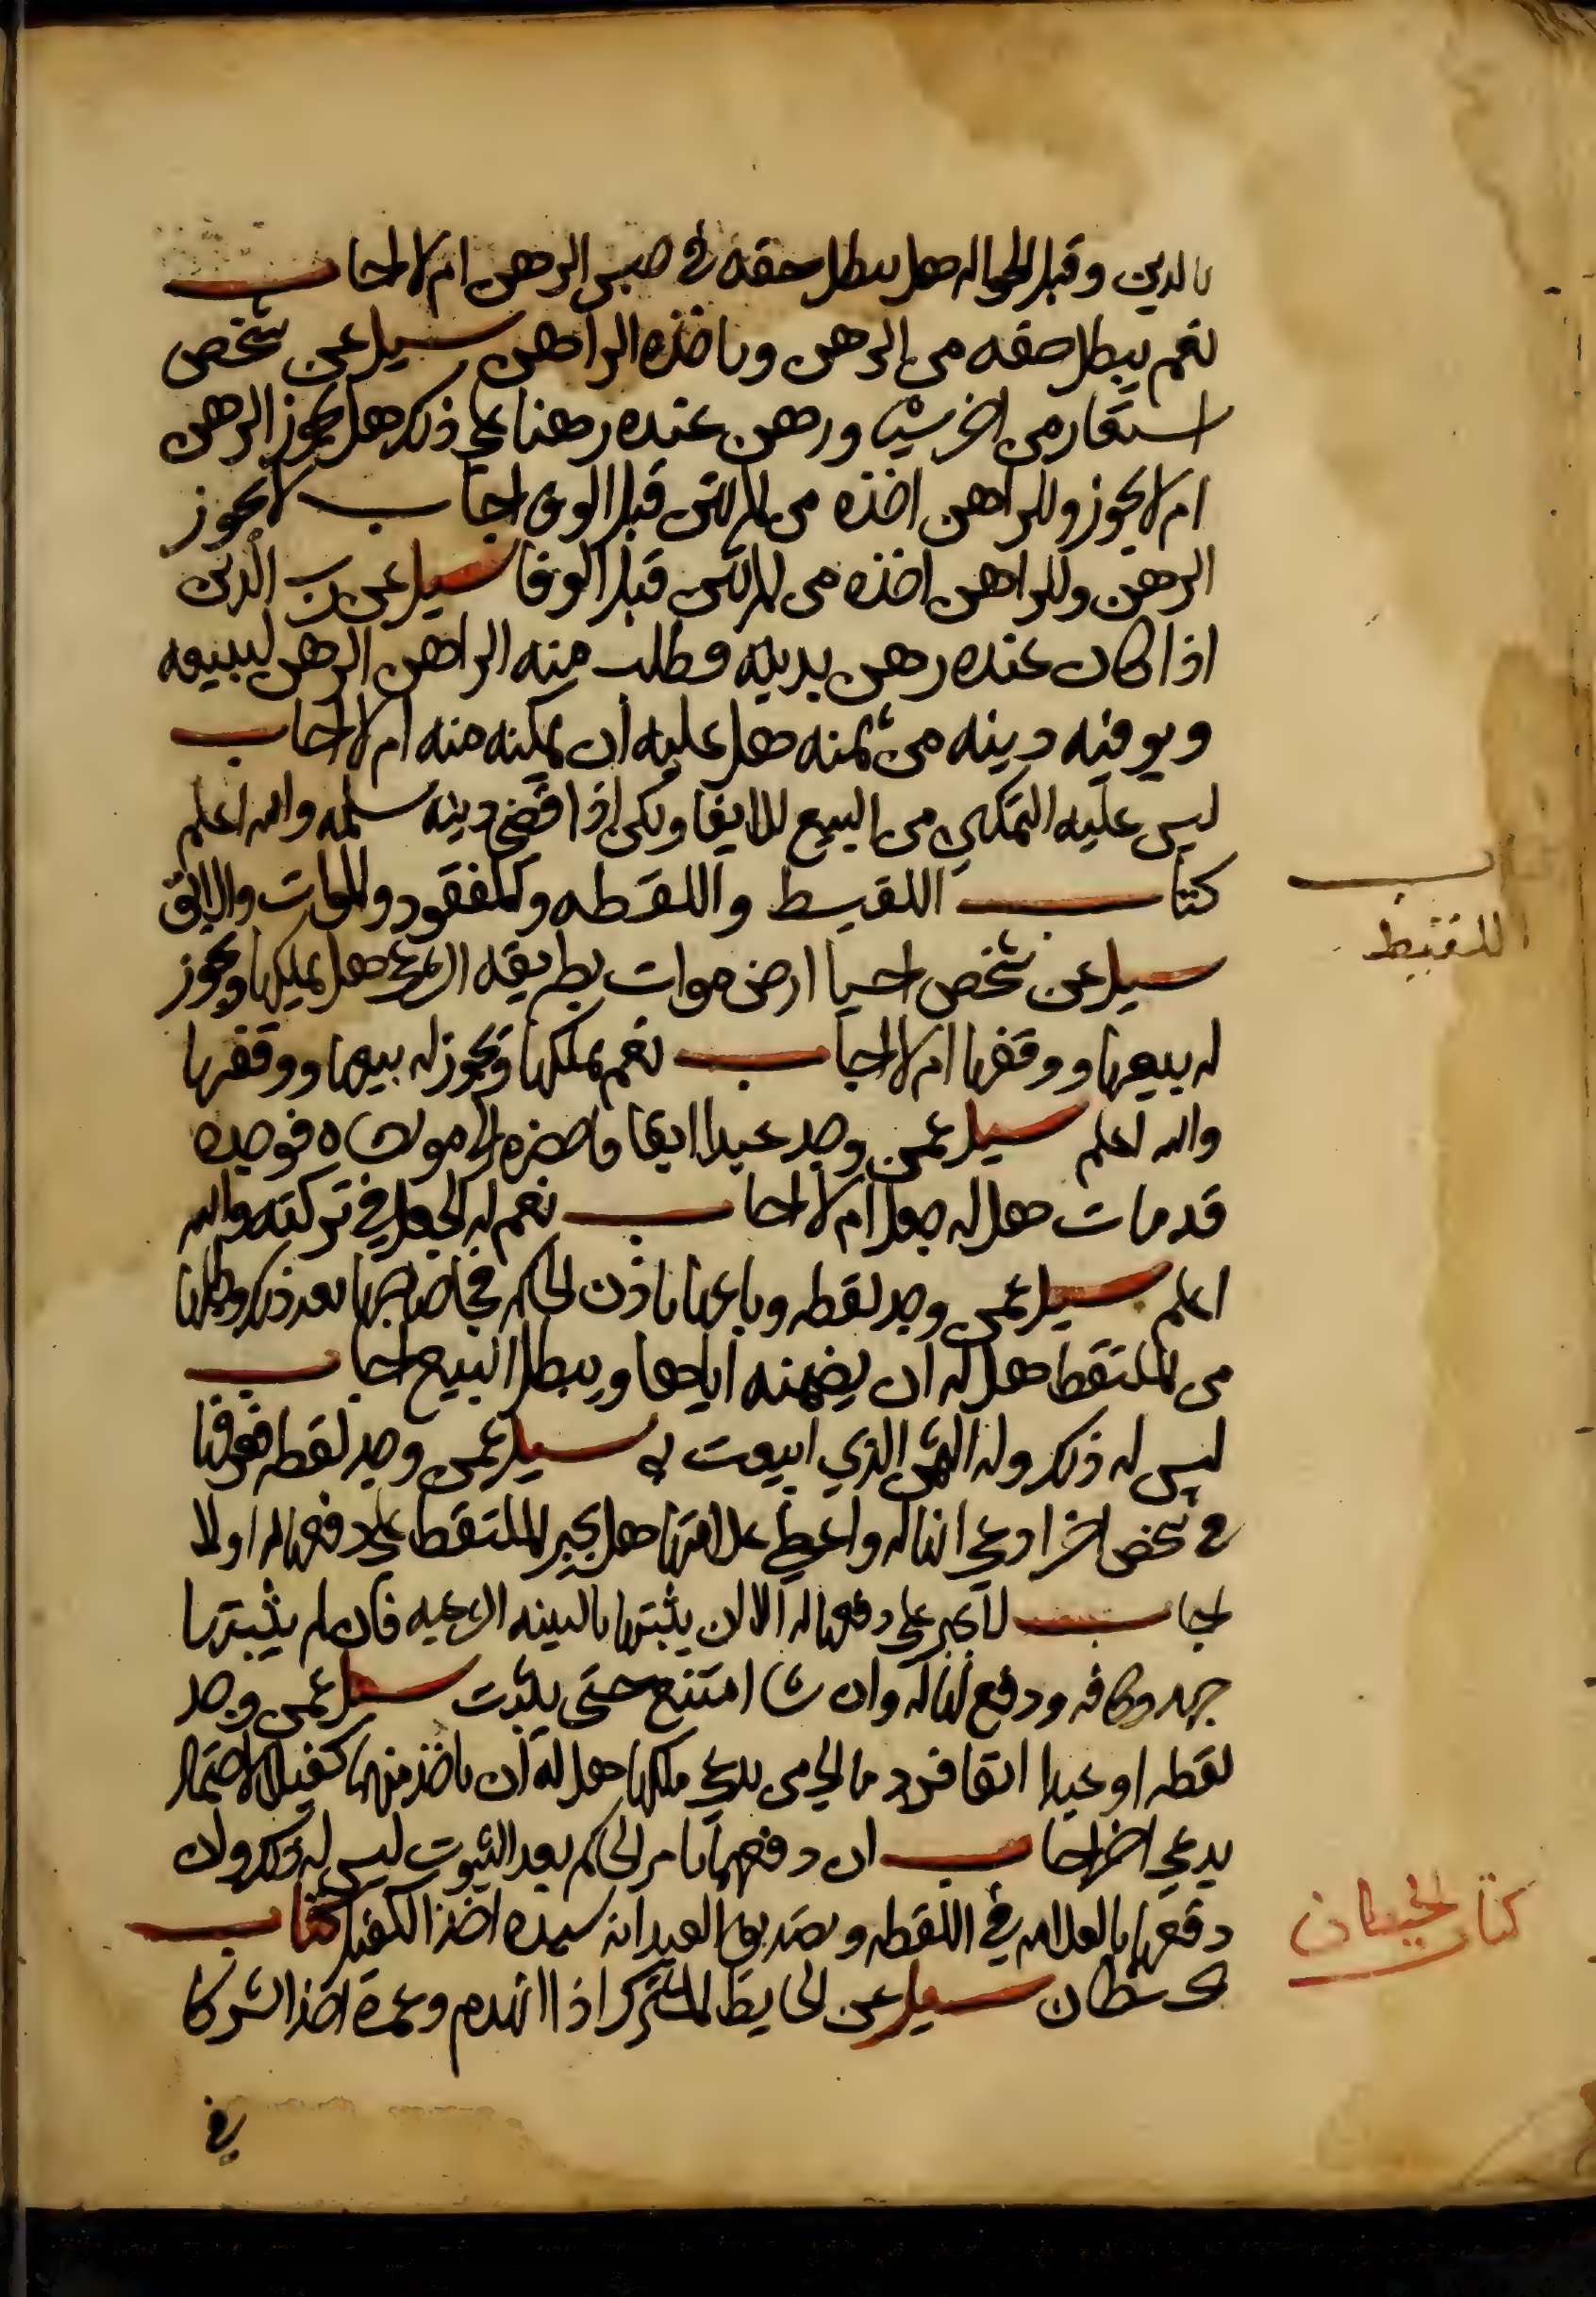 بالدين وقبل الحواله هل يبطل حقه في حبس الرهن ام لا اجاب
نعم يبطل حقه من الرهن وياخذه الراهن سيل عن شخص
استعار من اخر شيا ورهن عنده رهنا على ذلك هل يجوز الرهن
ام لا يجوز وللراهن اخذه من المرتهن قبل الوفا اجاب لا يجوز
الرهن وللراهن اخذه من المرتهن قبل الوفا سيل عن رب الدين
اذا كان عنده رهن بدينه وطلب منه الراهن الرهن ليبيعه
ويوفيه دينه من ثمنه هل عليه ان يمكنه منه ام لا اجاب
ليس عليه التمكين من البيع للايفا ولكن اذا قضى دينه سلمه والله اعلم
كتاب اللقيط واللقطه والمفقود والموات والابق
سيل عن شخص احيا ارض موات بطريقه الشرعي هل يملكها ويجوز
له بيعها ووقفها ام لا اجاب نعم يملكها ويجوز له بيعها ووقفها
والله اعلم سيل عمن وجد عبدا ابقا فاحضره الى مولاه فوجده
قد مات هل له جعل ام لا اجاب نعم له الجعل في تركته والله
اعلم سيل عمن وجد لقطه وباعها باذن الحاكم فجا صاحبها بعد ذلك وطلبها
من الملتقط هل له ان يضمنه اياها ويبطل البيع اجاب
ليس له ذلك وله الثمن الذي ابيعت به سيل عمن وجد لقطه فعرفها
في شخص اخر ادعى انها له واعطى علامتها هل يجبر الملتقط على دفعها له او لا
اجاب لا يجبر على دفعها له الا ان يثبتها بالبينه الشرعيه فان لم يثبتها
ودفع انها له وان شا امتنع حتى يثبت سيل عمن وجد
لقطه او عبدا ابقا من يدعي ملكها هل له ان ياخذ منهما كفيلا لاحتمال
يدعي اخر اجاب ان دفعهما بامر الحاكم بعد الثبوت ليس له ذلك وان
دفعها بالعلامه في اللقطه وبتصديق العبد انه سيده اخذ الكفيل كتاب
الحيطان سيل عن الحايط المشترك اذا انهدم وعمره احد الشركا
في
كتاب
اللقيط
كتاب الحيطان